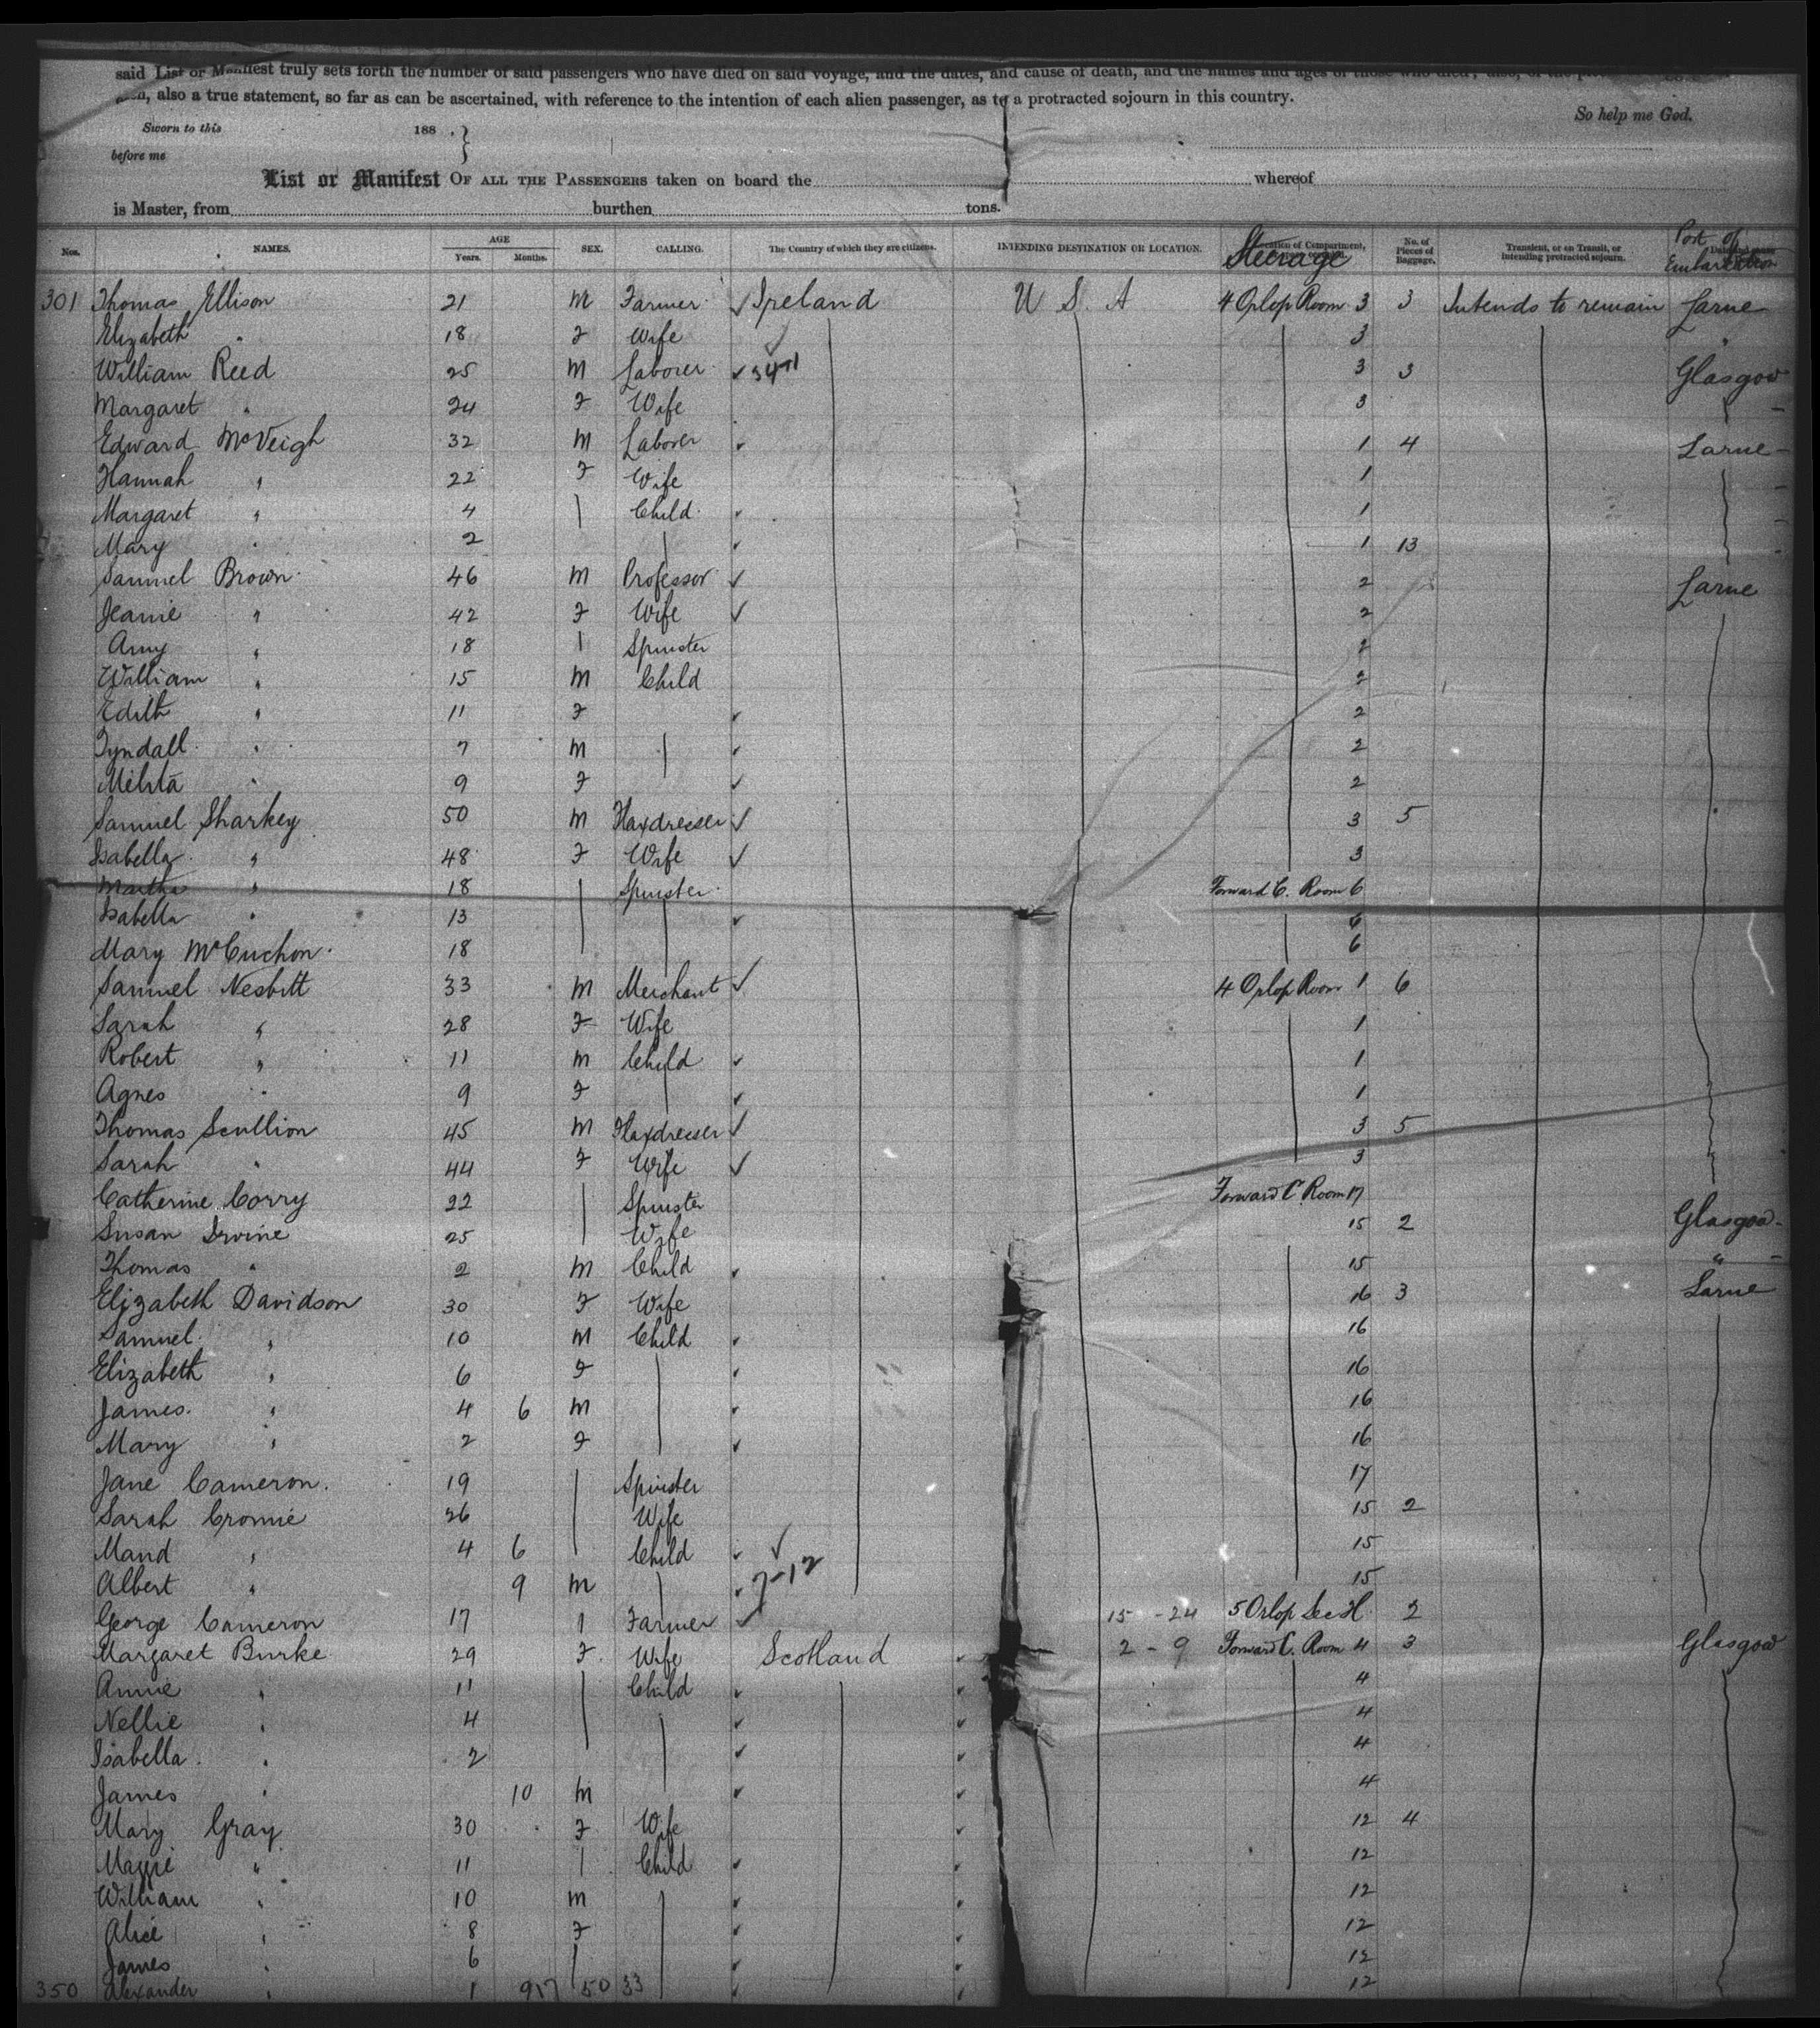 said List or Manifest truly sets forth the number of said passengers who have died on said voyage, and the dates, and cause of death, and the names and ages of those who died; also, of the
also a true statement, so far as can be ascertained, with reference to the intention of each alien passenger, as to a protracted sojourn in this country.
So help me God.
Sworn to this 188 . }
before me
List or Manifest OF ALL THE PASSENGERS taken on board the whereof
is Master, from burthen tons.
Nos. NAMES. AGE Years. Months. SEX. CALLING. The Country of which they are citizens. INTENDING DESTINATION OR LOCATION. Location of Compartment, Steerage No. of Pieces of Baggage. Transient, or in Transit, or intending protracted sojourn. Port of Embarkation
301 Thomas Ellison 21 M Farmer ✓ Ireland U S. A 4 Orlop Room 3 3 Intends to remain Larne
Elizabeth " 18 F Wife ✓ 3 "
William Reed 25 M Laborer ✓ 3 3 Glasgow
Margaret " 24 F Wife 3
Edward McVeigh 32 M Laborer ✓ 1 4 Larne
Hannah " 22 F Wife 1
Margaret " 4 Child ✓ 1
Mary " 2 ✓ 1 13
Samuel Brown 46 M Professor ✓ 2 Larne
Jeanie " 42 F Wife ✓ 2
Amy " 18 Spinster 2
William " 15 M Child 2
Edith " 11 F ✓ 2
Tyndall " 7 M ✓ 2
Melita " 9 F ✓ 2
Samuel Sharkey 50 M Flaxdresser ✓ 3 5
Isabella " 48 F Wife ✓ 3
Martha " 18 Spinster Forward C. Room 6
Isabella " 13 ✓ 6
Mary McCuchon 18 6
Samuel Nesbitt 33 M Merchant ✓ 4 Orlop Room 1 6
Sarah " 28 F Wife 1
Robert " 11 M Child ✓ 1
Agnes " 9 F ✓ 1
Thomas Scullion 45 M Flaxdresser ✓ 3 5
Sarah " 44 F Wife ✓ 3
Catherine Corry 22 Spinster Forward C. Room 17
Susan Irvine 25 Wife 15 2 Glasgow
Thomas " 2 M Child ✓ 15 "
Elizabeth Davidson 30 F Wife 16 3 Larne
Samuel " 10 M Child ✓ 16
Elizabeth " 6 F ✓ 16
James " 4 6 M ✓ 16
Mary " 2 F ✓ 16
Jane Cameron 19 Spinster 17
Sarah Cromie 26 Wife 15 2
Maud " 4 6 Child ✓ ✓ 15
Albert " 9 M ✓ 7-12 15
George Cameron 17 Farmer ✓ 15 - 24 5 Orlop Sec H 2
Margaret Burke 29 F Wife Scotland ✓ 2 - 9 Forward C. Room 4 3 Glasgow
Annie " 11 Child ✓ ✓ 4
Nellie " 4 ✓ ✓ 4
Isabella " 2 ✓ ✓ 4
James " 10 M ✓ ✓ 4
Mary Gray 30 F Wife ✓ 12 4
Maggie " 11 Child ✓ ✓ 12
William " 10 M ✓ ✓ 12
Alice " 8 F ✓ ✓ 12
James " 6 ✓ ✓ 12
350 Alexander " 1 917 50 33 ✓ ✓ 12